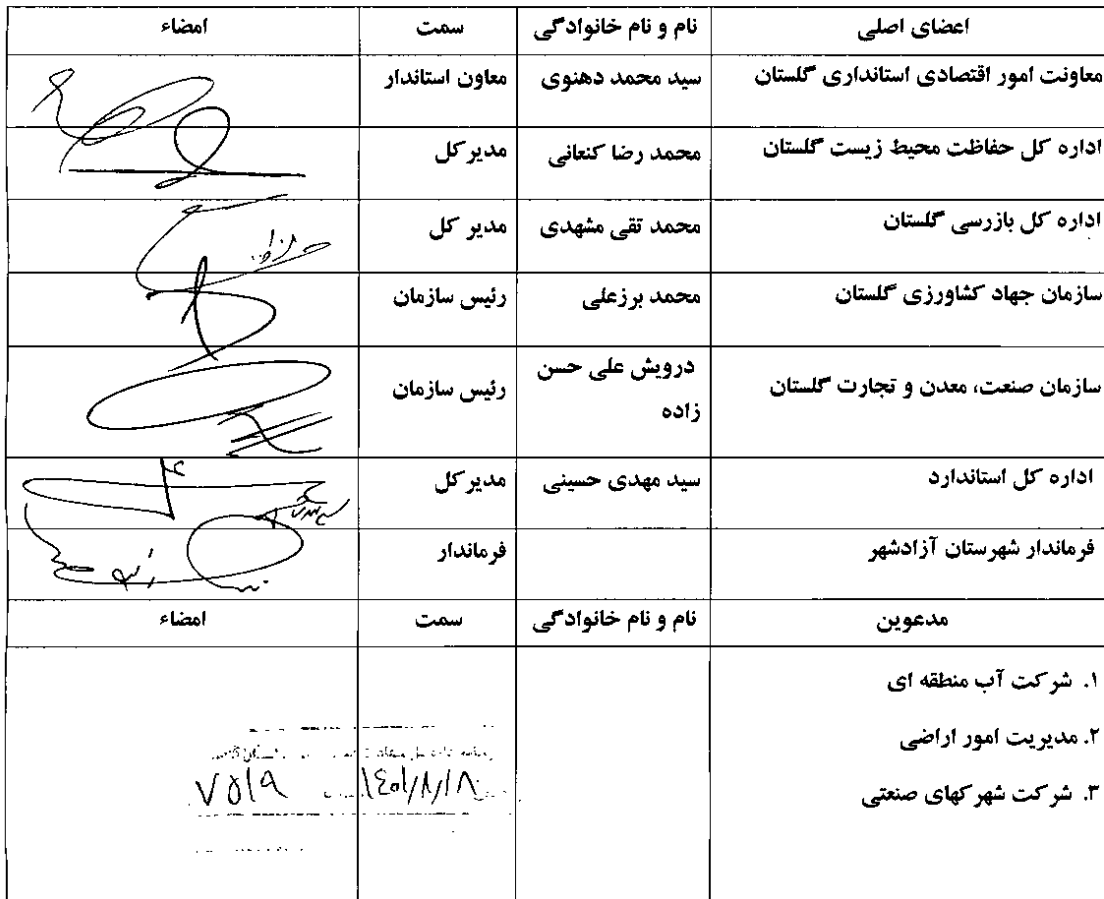 اعضای اصلی نام و نام خانوادگی سمت امضاء
معاونت امور اقتصادی استانداری گلستان سید محمد دهنوی معاون استاندار
اداره کل حفاظت محیط زیست گلستان محمد رضا کنعانی مدیر کل
اداره کل بازرسی گلستان محمد تقی مشهدی مدیر کل
سازمان جهاد کشاورزی گلستان محمد برزعلی رئیس سازمان
سازمان صنعت، معدن و تجارت گلستان درویش علی حسن رئیس سازمان
زاده
اداره کل استاندارد سید مهدی حسینی مدیر کل
فرماندار شهرستان آزادشهر فرماندار
مدعوین نام و نام خانوادگی سمت امضاء
۱. شرکت آب منطقه ای
۲. مدیریت امور اراضی
۳. شرکت شهرکهای صنعتی
۱۴۰۱/۸/۱۸ ۷۵۱۹